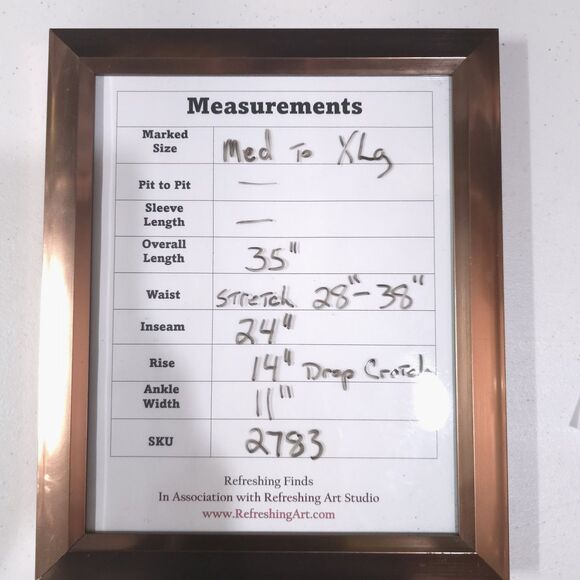 Measurements
Marked Size Med To XLg
Pit to Pit —
Sleeve Length —
Overall Length 35"
Waist Stretch 28"-38"
Inseam 24"
Rise 14" Drop Crotch
Ankle Width 11"
SKU 2783
Refreshing Finds
In Association with Refreshing Art Studio
www.RefreshingArt.com